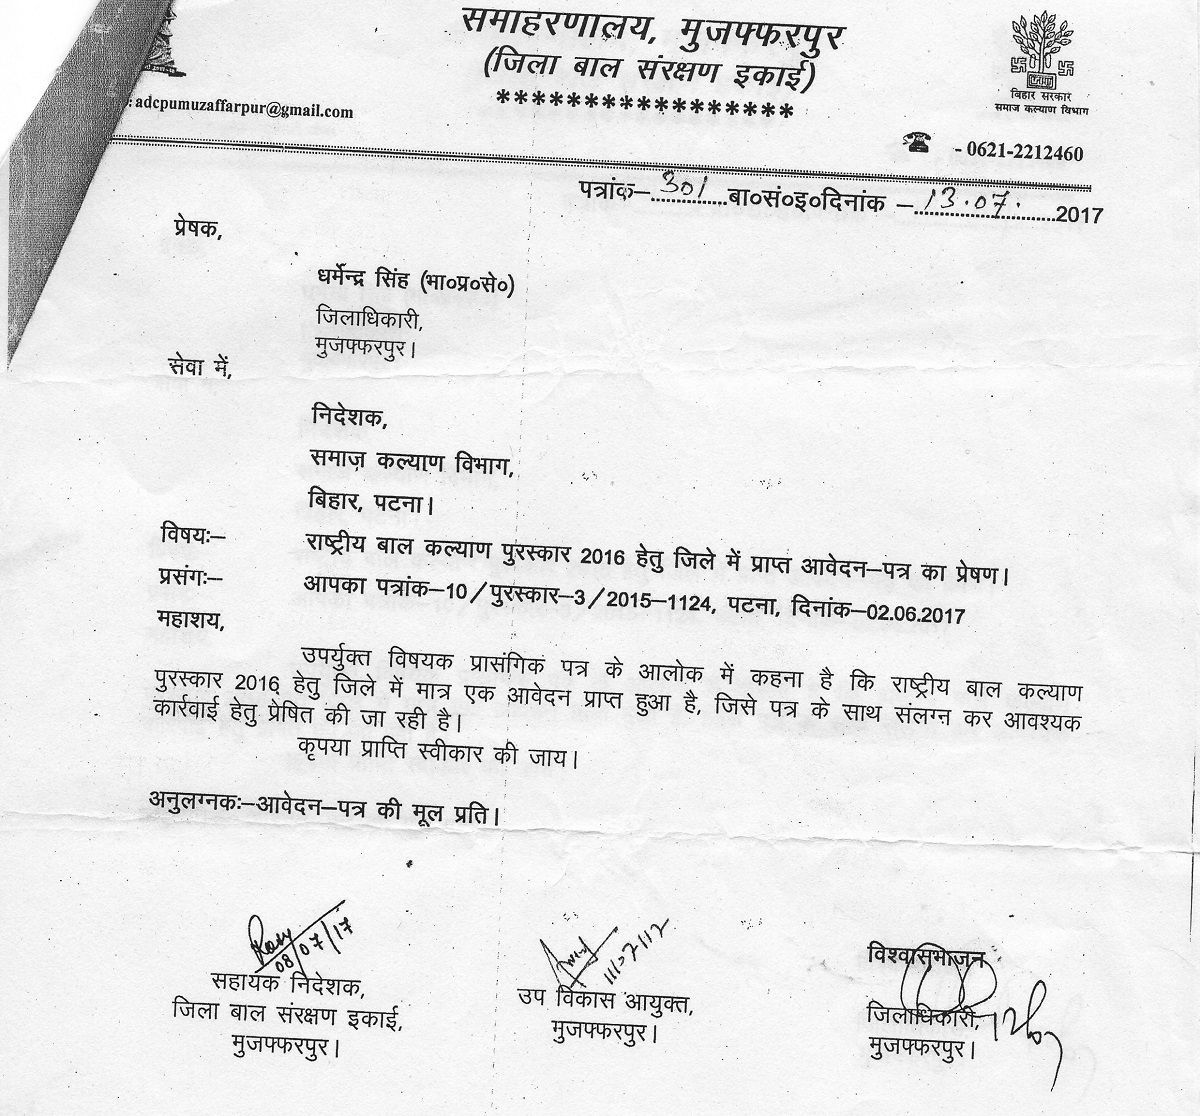 समाहरणालय, मुजफ्फरपुर
(जिला बाल संरक्षण इकाई)
*****************
बिहार सरकार
समाज कल्याण विभाग
: adcpumuzaffarpur@gmail.com
- 0621-2212460
पत्रांक–301 बा०सं०इ०दिनांक –13.07.2017
प्रेषक,
धर्मेन्द्र सिंह (भा०प्र०से०)
जिलाधिकारी,
मुजफ्फरपुर।
सेवा में,
निदेशक,
समाज़ कल्याण विभाग,
बिहार, पटना।
विषयः– राष्ट्रीय बाल कल्याण पुरस्कार 2016 हेतु जिले में प्राप्त आवेदन–पत्र का प्रेषण।
प्रसंगः– आपका पत्रांक–10/पुरस्कार–3/2015–1124, पटना, दिनांक–02.06.2017
महाशय,
उपर्युक्त विषयक प्रासंगिक पत्र के आलोक में कहना है कि राष्ट्रीय बाल कल्याण
पुरस्कार 2016 हेतु जिले में मात्र एक आवेदन प्राप्त हुआ है, जिसे पत्र के साथ संलग्न कर आवश्यक
कार्रवाई हेतु प्रेषित की जा रही है।
कृपया प्राप्ति स्वीकार की जाय।
अनुलग्नकः–आवेदन–पत्र की मूल प्रति।
08/07/17
सहायक निदेशक,
जिला बाल संरक्षण इकाई,
मुजफ्फरपुर।
उप विकास आयुक्त,
मुजफ्फरपुर।
विश्वासभाजन
जिलाधिकारी,
मुजफ्फरपुर।